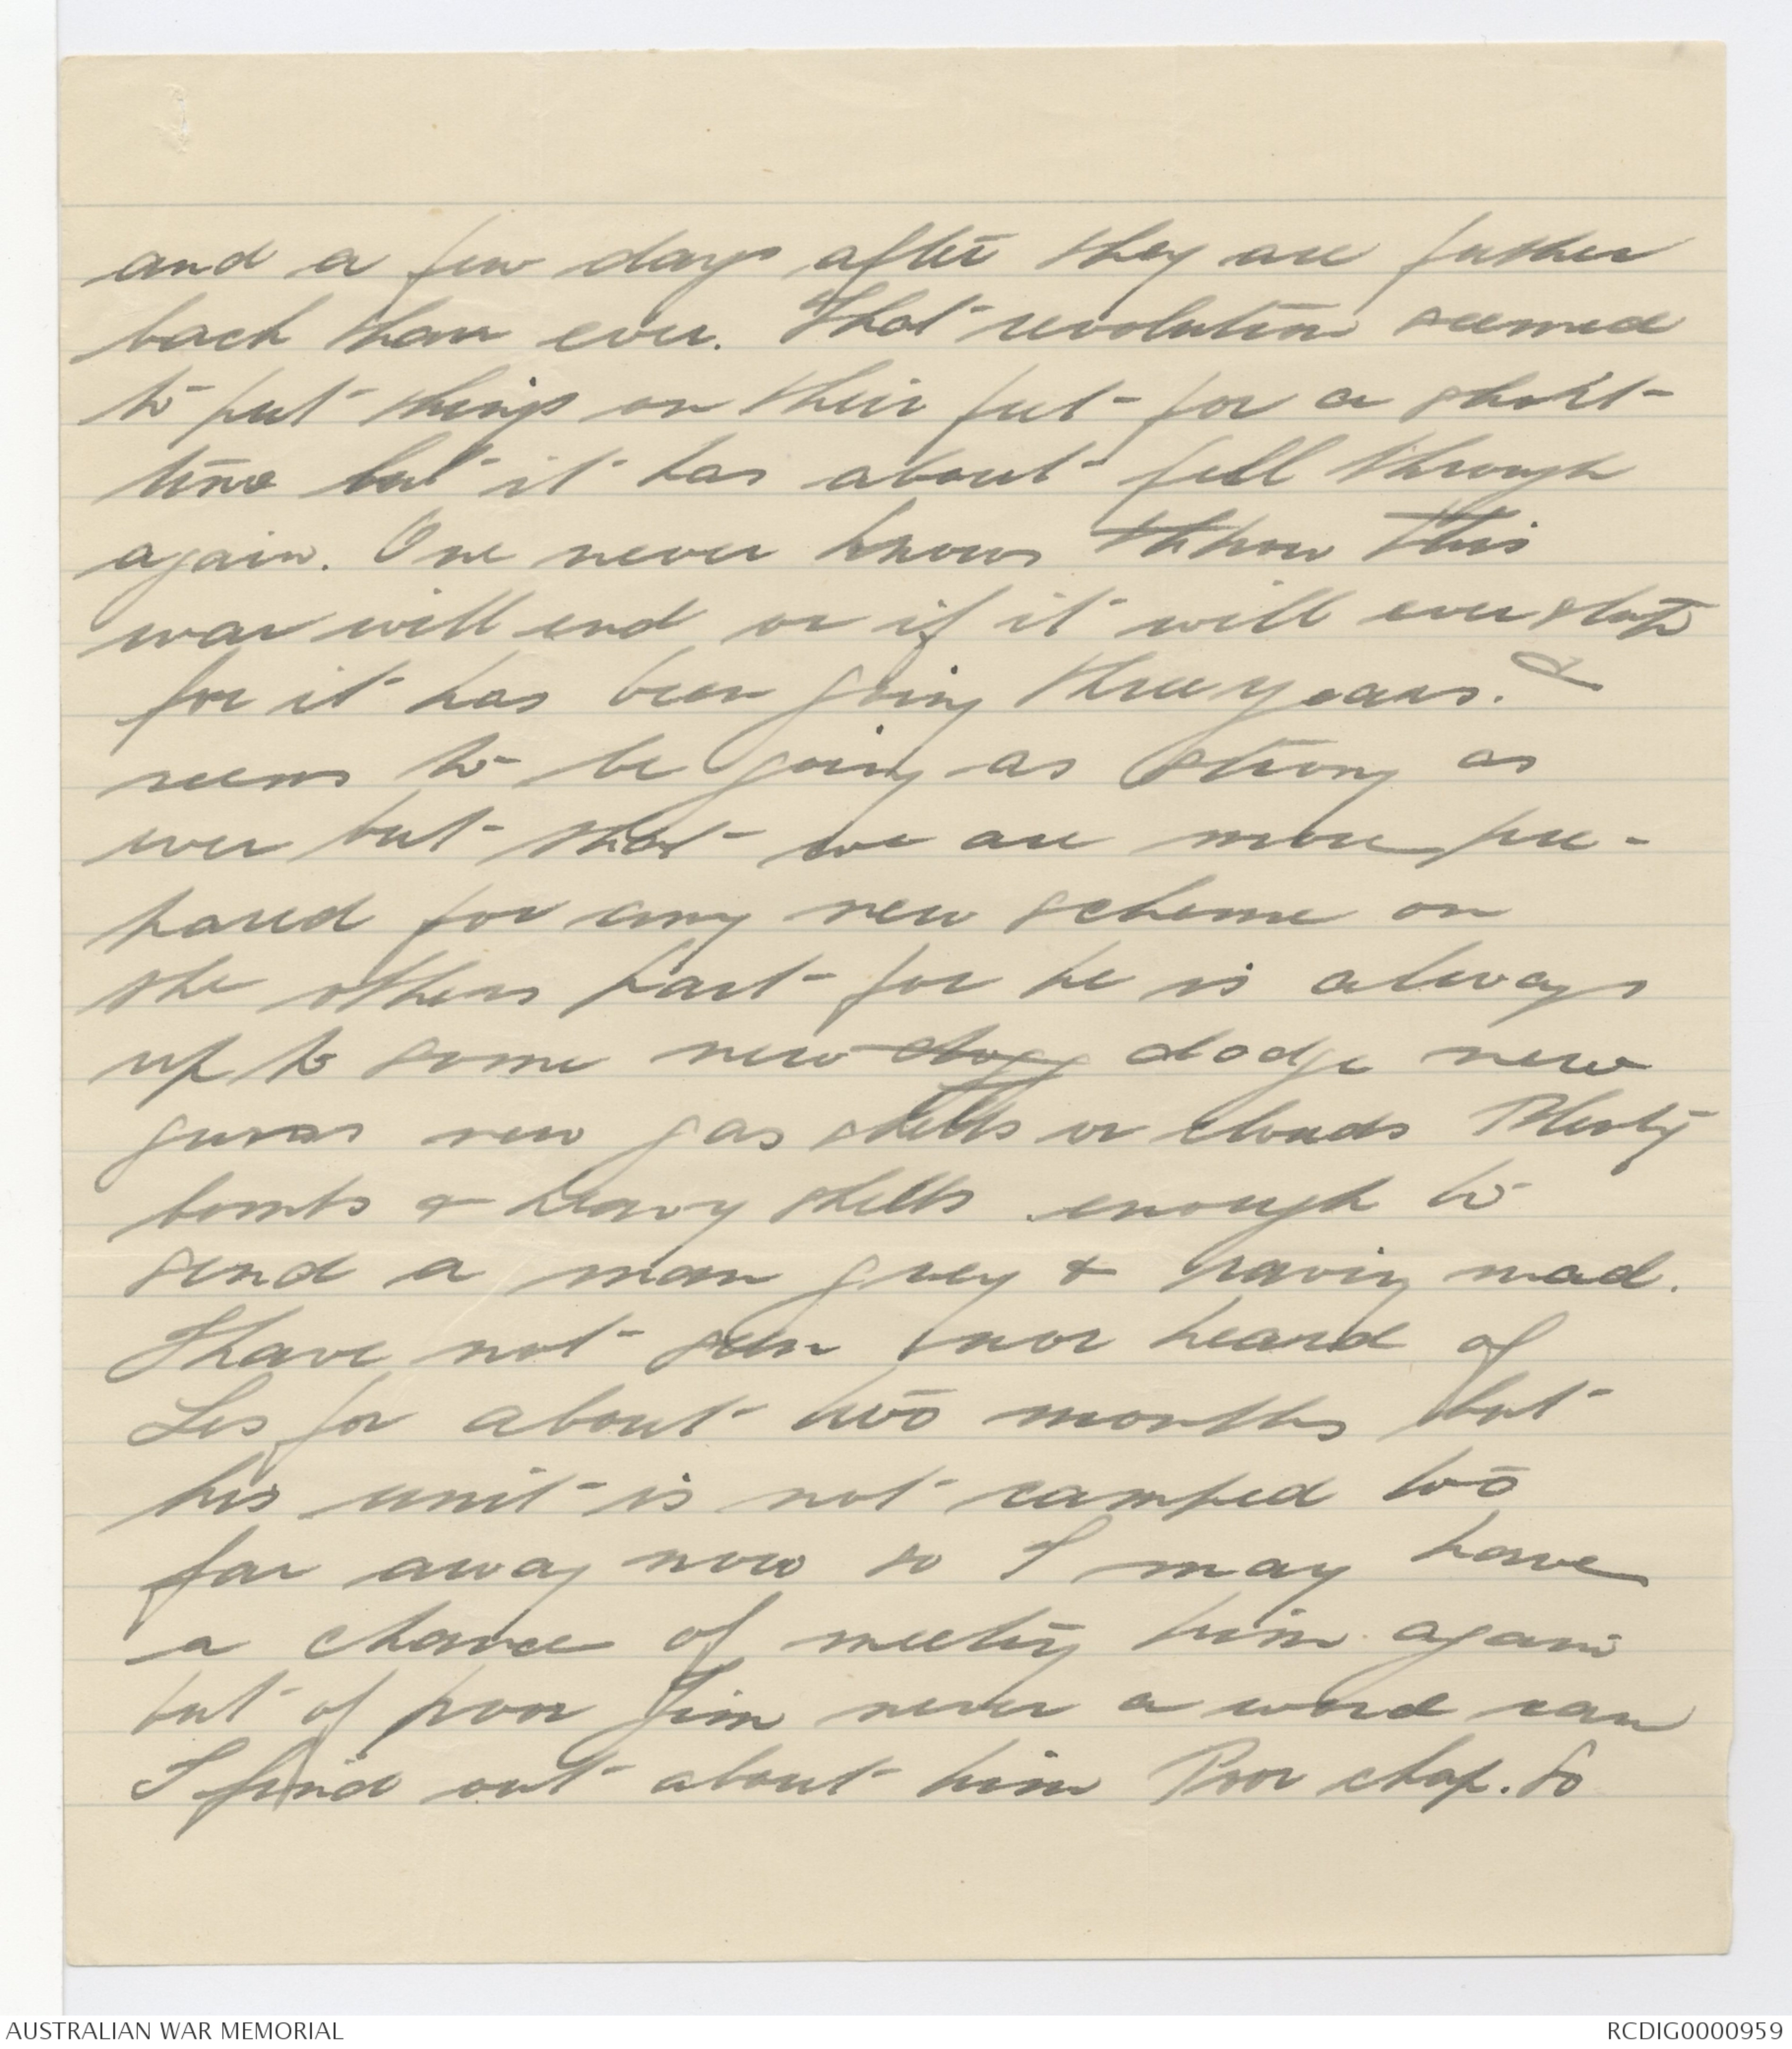 and a few days after they are futher
back than ever. That revolution seemed
to put things on their feet for a short
time but it has about fell through
again. One never knows how this
war will end or if it will ever stop
for it has been going three years. &
seems to be going as strong as
ever but that we are more pre-
pared for any new scheme on
the others part for he is always
up to some new dogg dodge new
guns new gas shells or clouds
bombs & heavy shells enough to
send a man grey & raving mad.
I have not seen nor heard of
Les for about two months but
his unit is not camped too
far away now so I may have
a chance of meeting him again
but of poor Jim never a word can
I find out about him Poor chap. So
AUSTRALIAN WAR MEMORIAL
RCDIG0000959